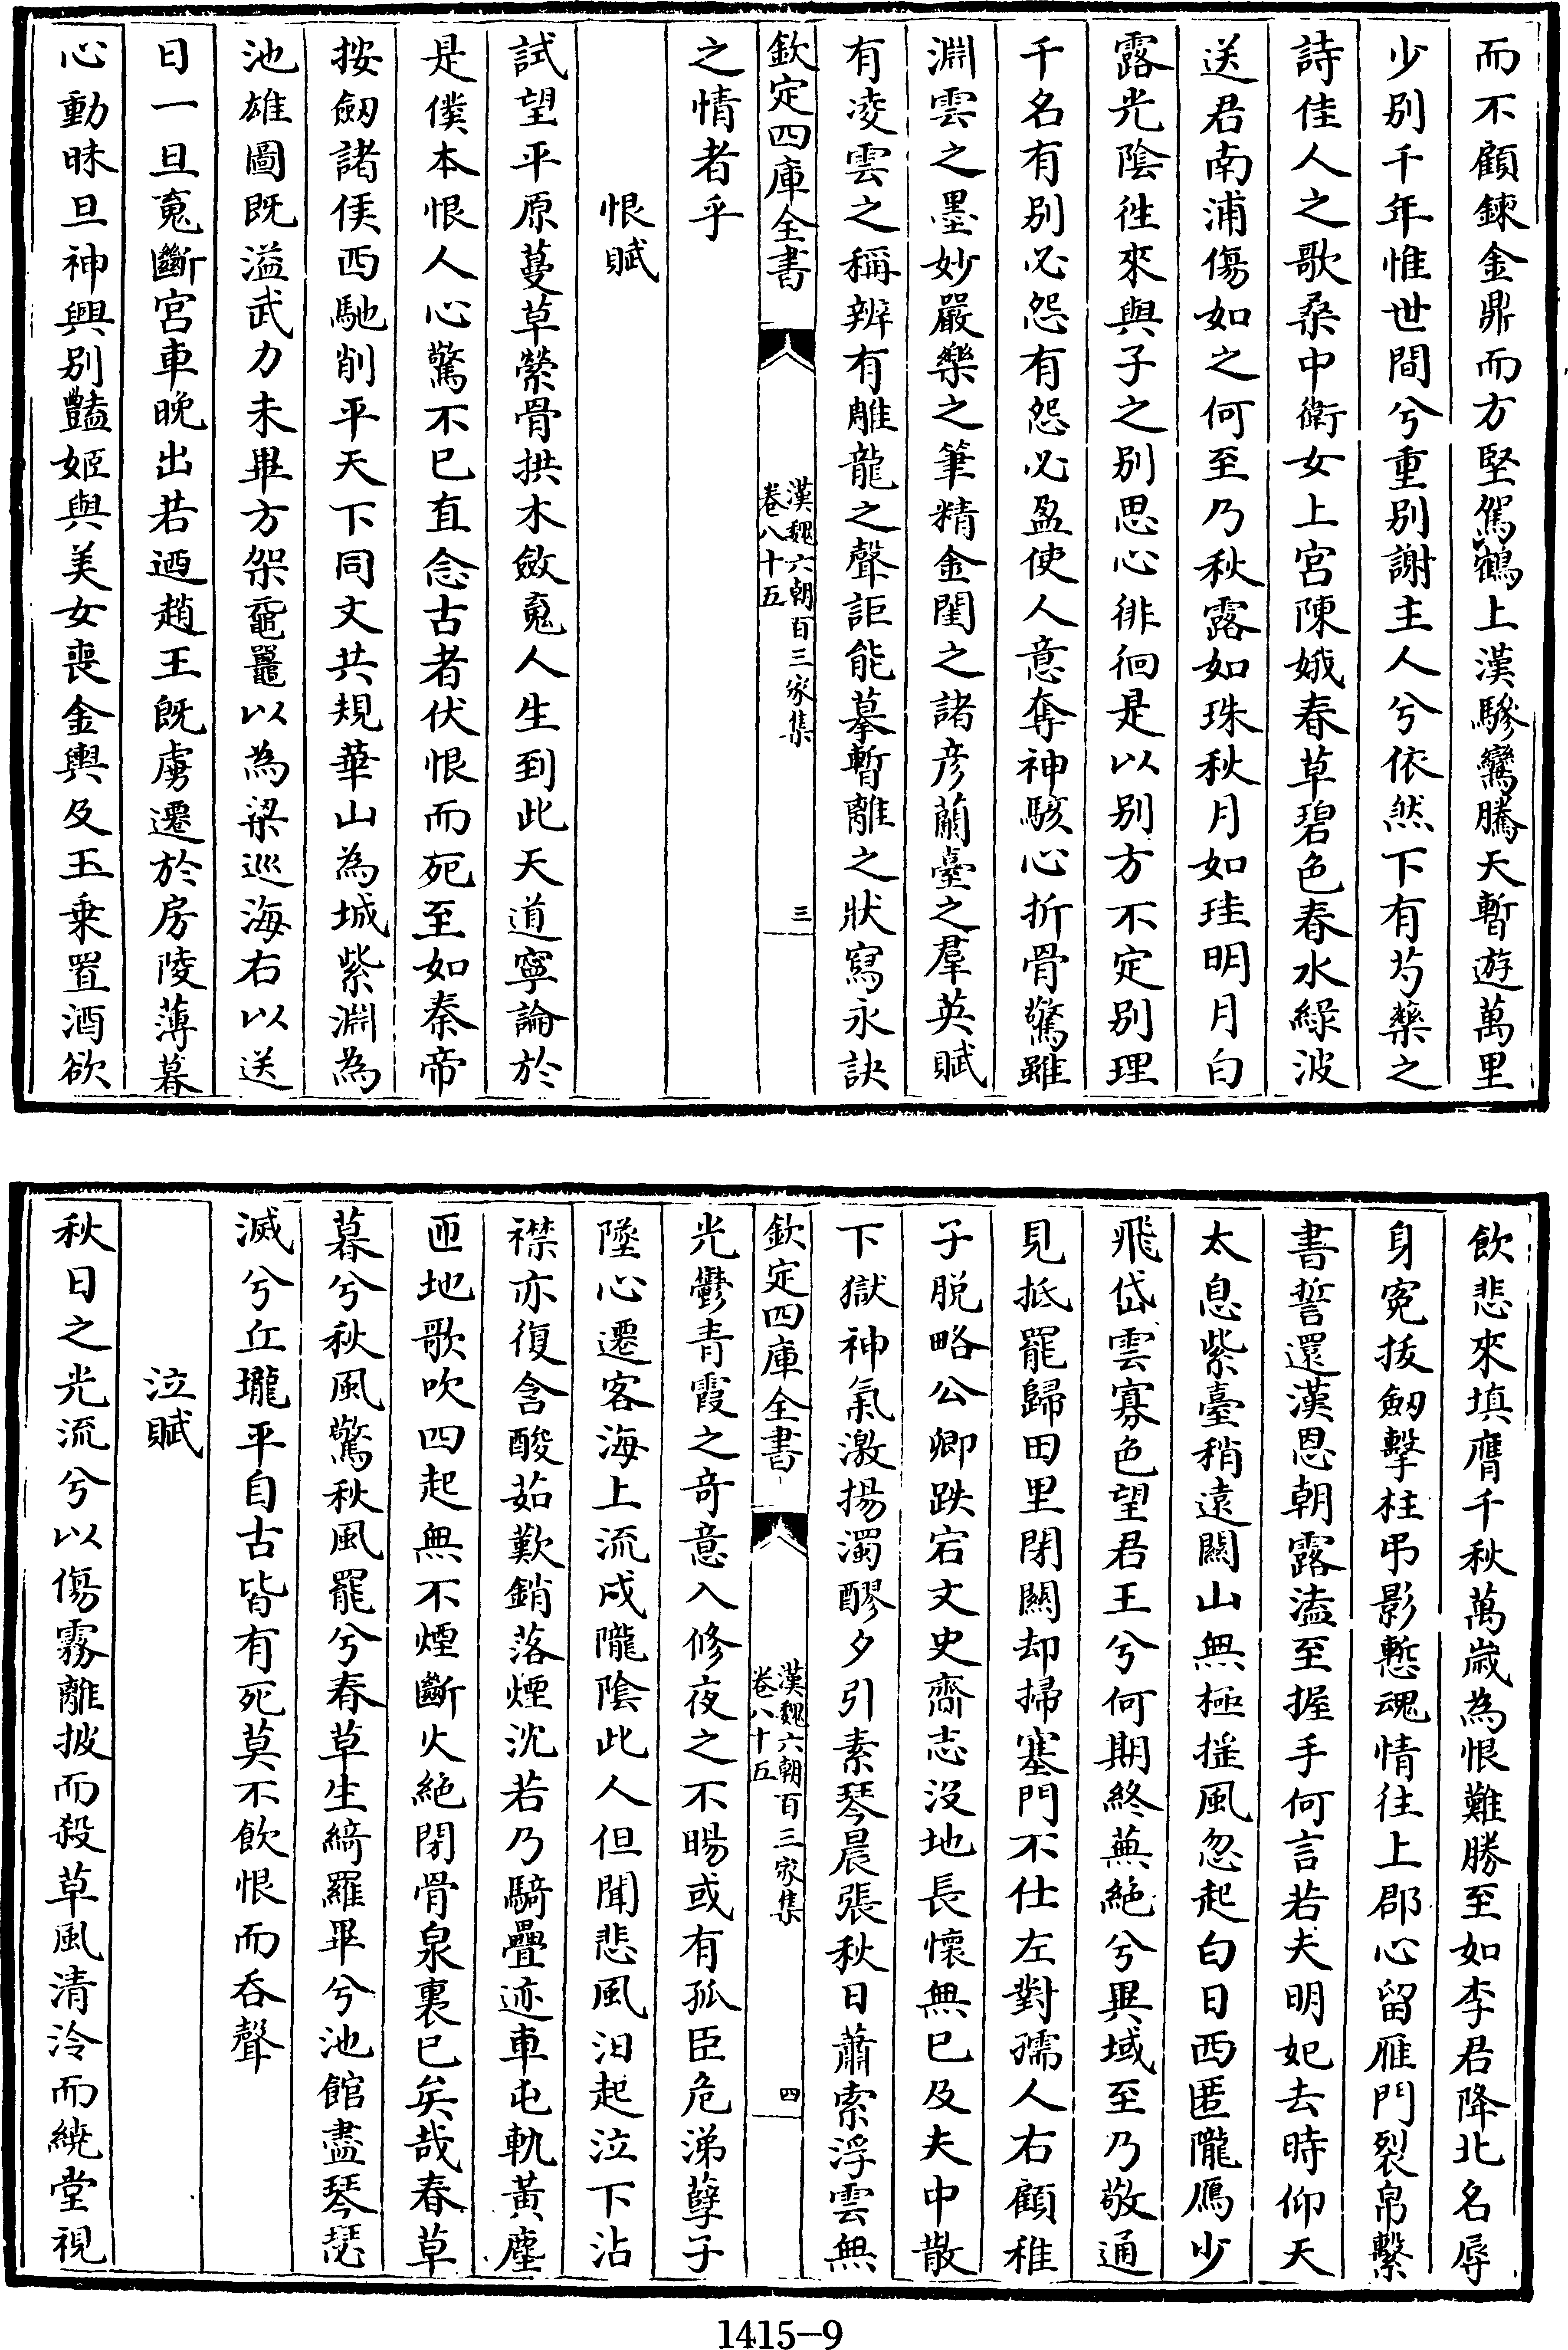 而不顧鍊金鼎而方堅駕鶴上漢驂鸞騰天暫遊萬里
少别千年惟世間兮重别謝主人兮依然下有芍藥之
詩佳人之歌桑中衛女上宮陳娥春草碧色春水綠波
送君南浦傷如之何至乃秋露如珠秋月如珪明月白
露光陰徃來與子之别思心徘徊是以别方不定别理
千名有别必怨有怨必盈使人意奪神駭心折骨驚雖
淵雲之墨妙嚴樂之筆精金閨之諸彦蘭臺之羣英賦
有凌雲之稱辨有雕龍之聲詎能摹暫離之狀寫永訣
欽定四庫全書 漢魏六朝百三家集 卷八十五 三
之情者乎
恨賦
試望平原蔓草縈骨拱木斂䰟人生到此天道寧論於
是僕本恨人心驚不已直念古者伏恨而死至如秦帝
按劒諸侯西馳削平天下同文共規華山為城紫淵為
池雄圖既溢武力未畢方架黿鼉以為梁巡海右以送
日一旦䰟斷宮車晚出若迺趙王既虜遷於房陵薄暮
心動昧旦神興别豔姬與美女喪金輿及玉乗置酒欲
飲悲來填膺千秋萬歳為恨難勝至如李君降北名辱
身寃拔劒擊柱弔影慙魂情往上郡心留雁門裂帛繫
書誓還漢恩朝露溘至握手何言若夫明妃去時仰天
太息紫臺稍遠闗山無極揺風忽起白日西匿隴鴈少
飛岱雲寡色望君王兮何期終蕪絶兮異域至乃敬通
見抵罷歸田里閉闗却掃塞門不仕左對孺人右顧稚
子脱略公卿跌宕文史齎志沒地長懷無已及夫中散
下獄神氣激揚濁醪夕引素琴晨張秋日蕭索浮雲無
欽定四庫全書 漢魏六朝百三家集 卷八十五 四
光鬱青霞之竒意入修夜之不暘或有孤臣危涕孽子
墜心遷客海上流戍隴陰此人但聞悲風汨起泣下沾
襟亦復含酸茹歎銷落煙沈若乃騎疊迹車屯軌黃塵
匝地歌吹四起無不煙斷火絶閉骨泉裏已矣哉春草
暮兮秋風驚秋風罷兮春草生綺羅畢兮池館盡琴瑟
滅兮丘壠平自古皆有死莫不飲恨而呑聲
泣賦
秋日之光流兮以傷霧離披而殺草風清泠而繞堂視
1415—9